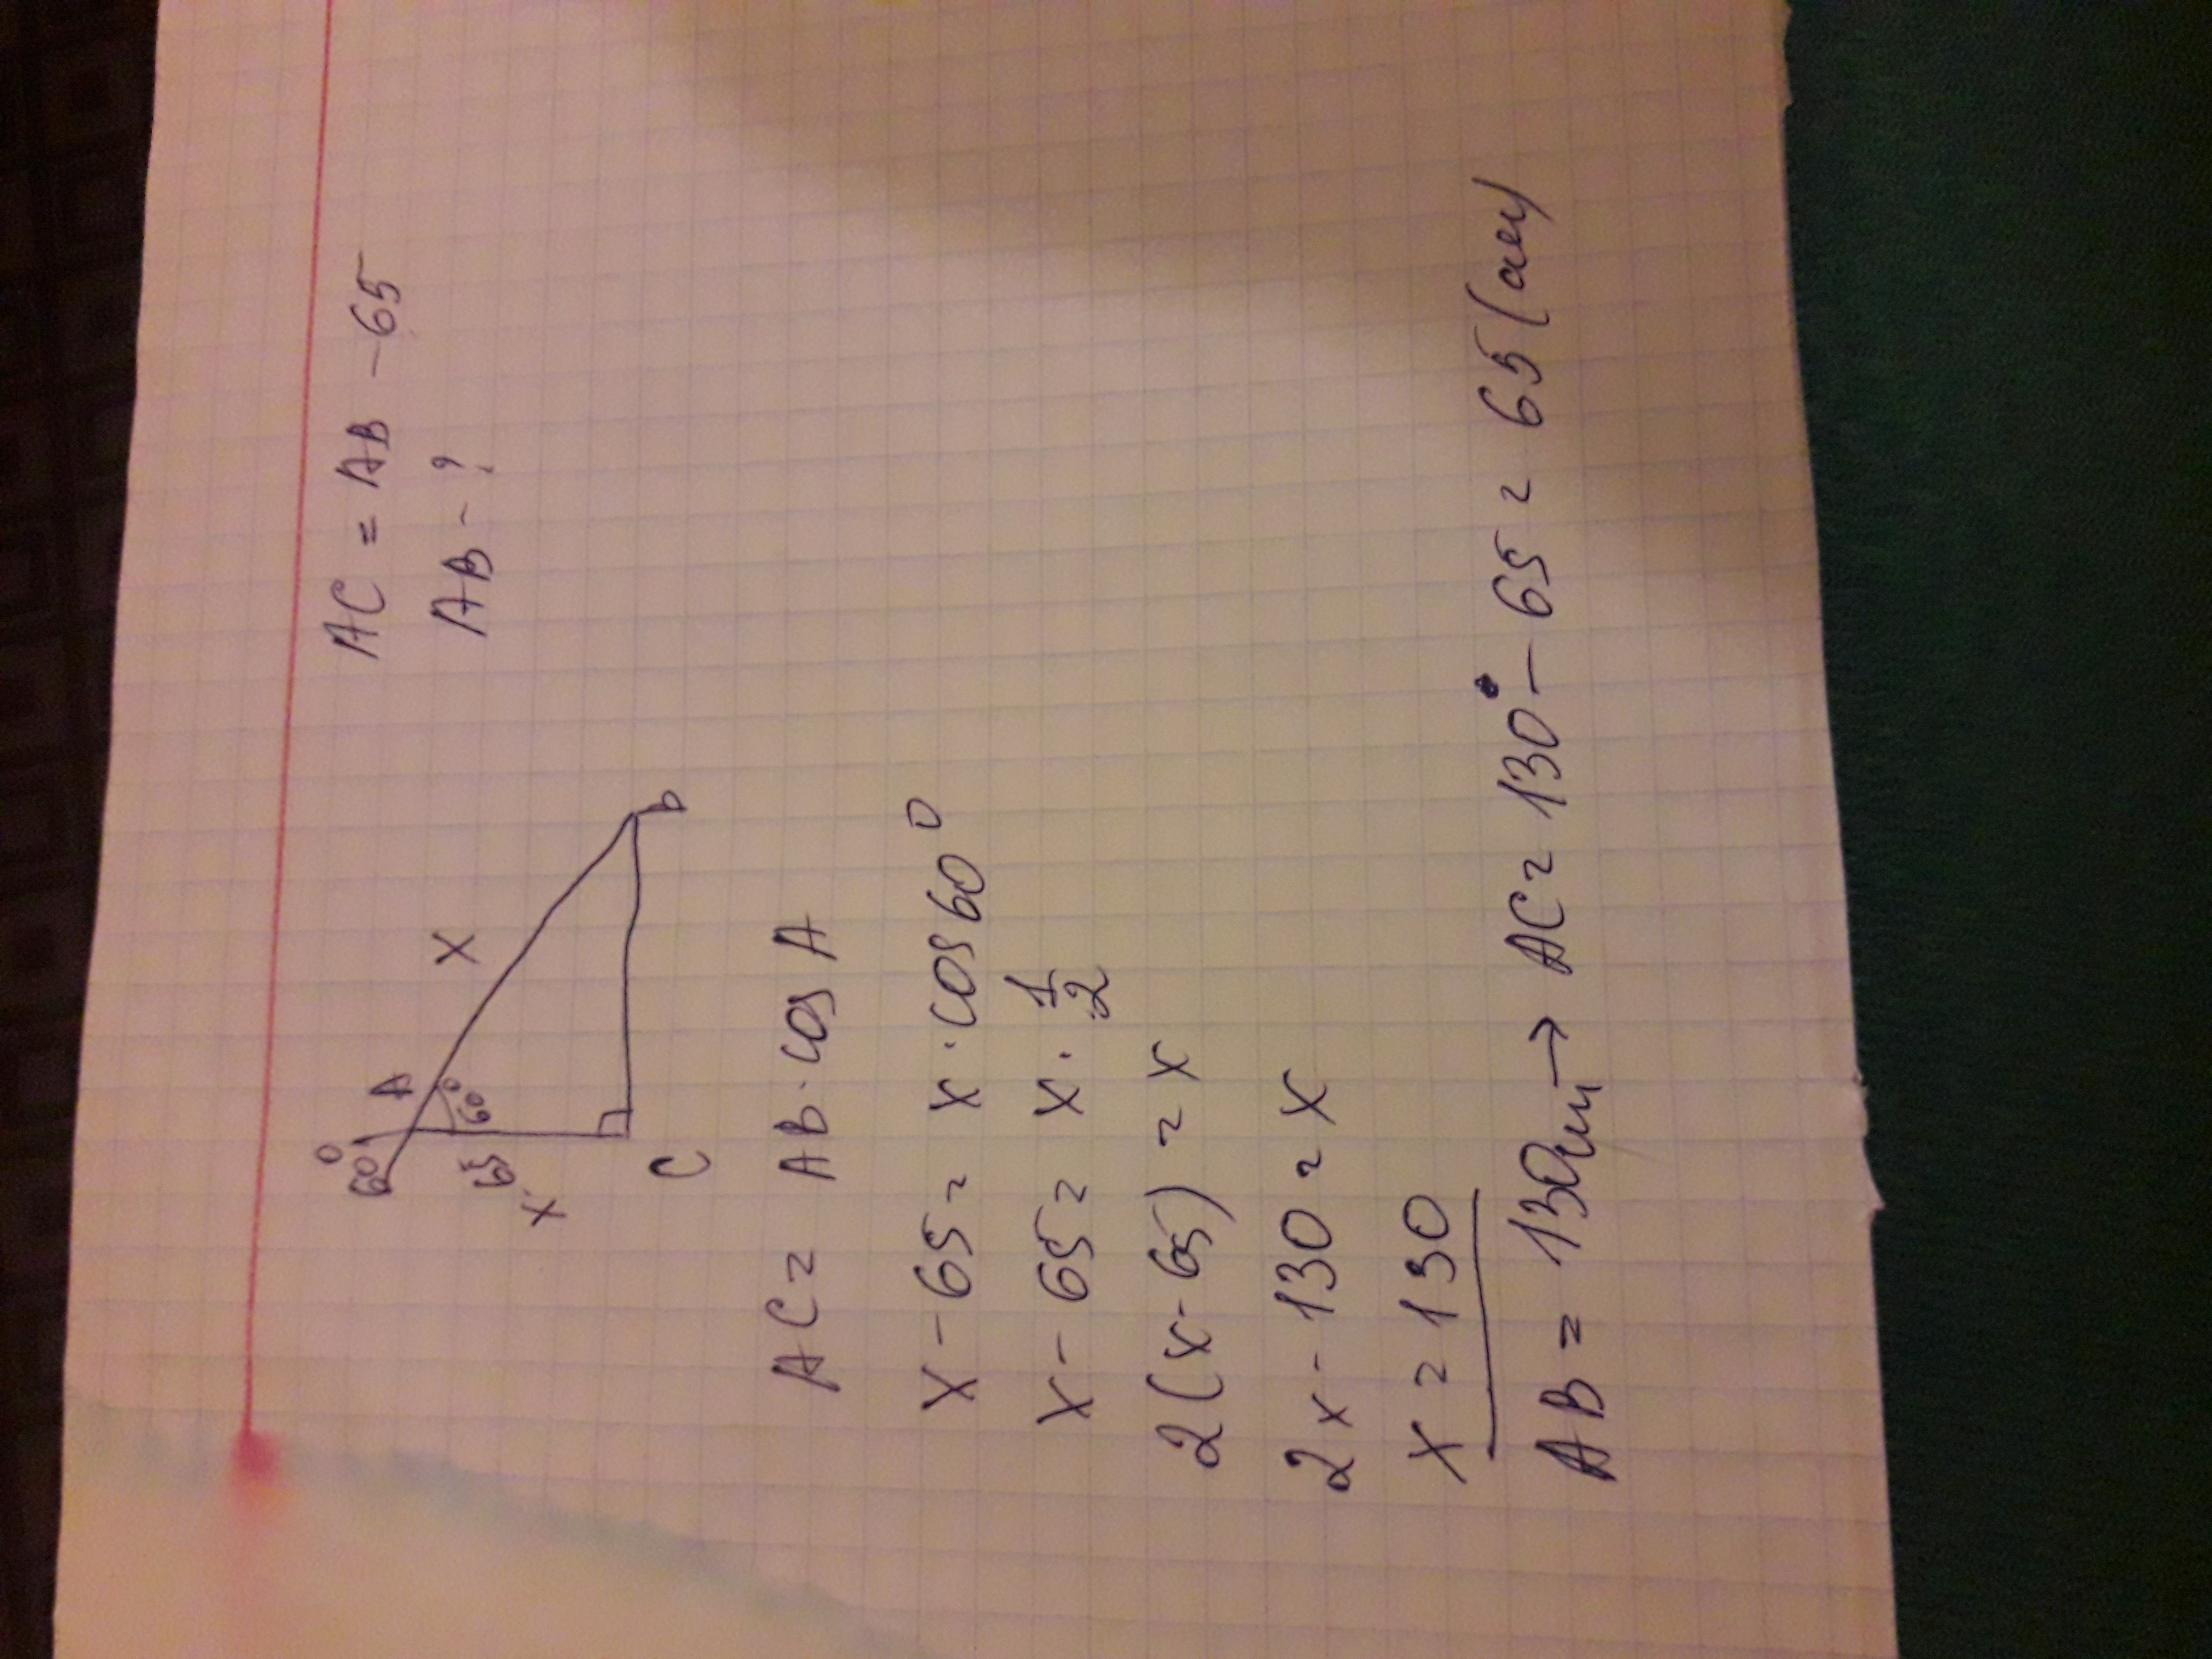 AC = AB - 65
AB - ?
60°
A
60°
X
65
X
C
b
AC = AB · cos A
X - 65 = X · cos 60°
X - 65 = X · 1/2
2(x - 65) = X
2x - 130 = X
X = 130
AB = 130 → AC = 130 - 65 = 65